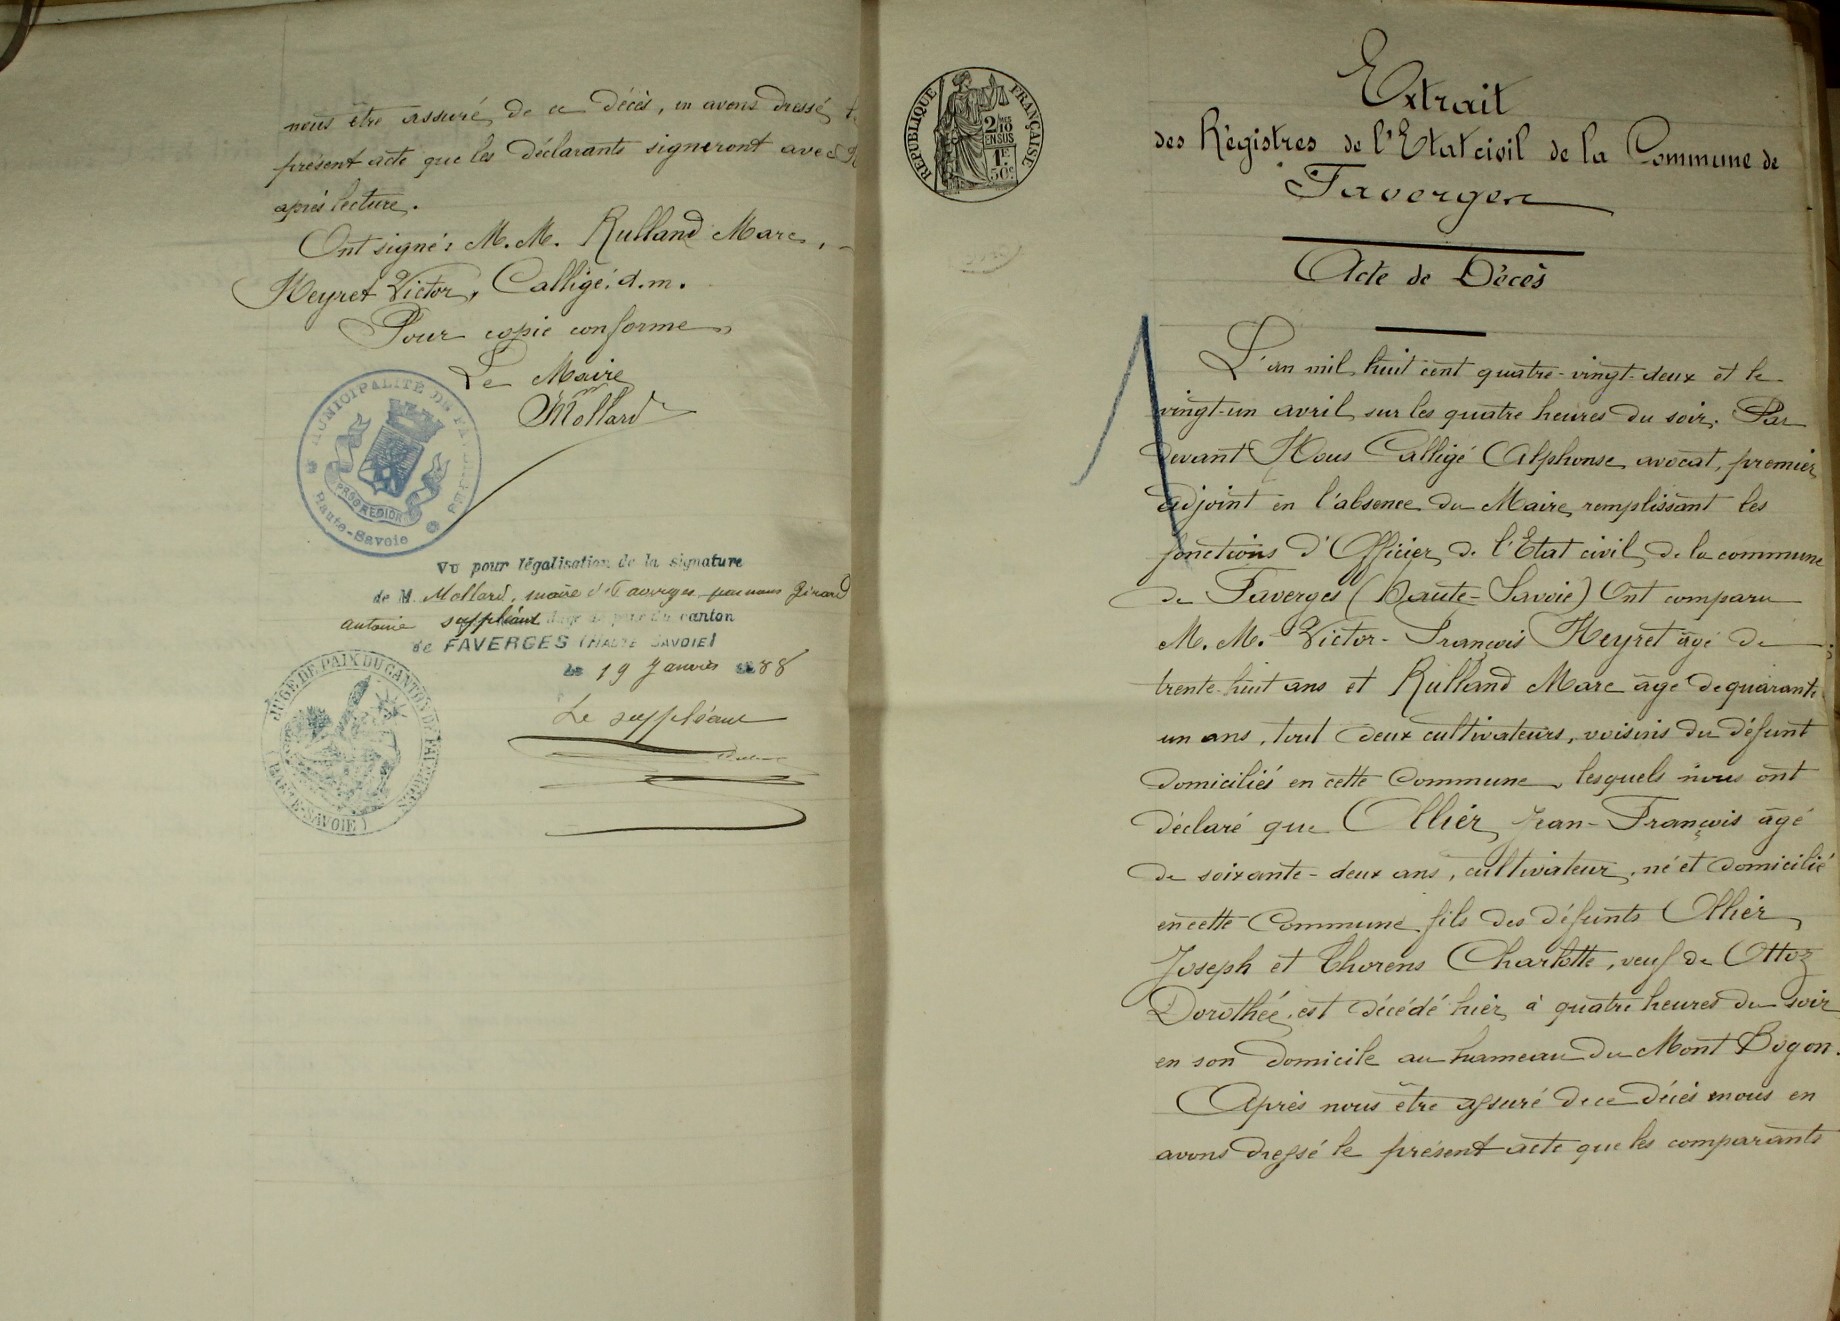 nous être assuré de ce décès, en avons dressé
présent acte que les déclarants signeront avec
après lecture.
Ont signé: M.M. Rulland Marc,
Neyret Victor, Calligé. d. m.
Pour copie conforme
Le Maire
Mollard
MUNICIPALITÉ DE
PROD REGION
Haute-Savoie
Vu pour légalisation de la signature
de M. Mollard, maire de Faverges par nous Girard
Antoine suppléant du canton
de FAVERGES (HAUTE SAVOIE)
le 19 Janvier 1888
JUGE DE PAIX DU CANTON DE FAVERGES
(HAUTE-SAVOIE)
Le suppléant
RÉPUBLIQUE FRANÇAISE
2/10
EN SUS
1F
50c
Extrait
des Régistres de l'Etat civil de la Commune de
Faverges
Acte de Décès
L'an mil huit cent quatre-vingt-deux et le
vingt-un avril sur les quatre heures du soir. Par
devant Nous Calligé Alphonse avocat, premier
adjoint en l'absence du Maire remplissant les
fonctions d'Officier de l'Etat civil de la commune
de Faverges (Haute-Savoie) Ont comparu
M. M. Victor-François Neyret âgé de
trente-huit ans et Rulland Marc âgé de quarante
un ans, tout deux cultivateurs, voisins du défunt
domiciliés en cette Commune, lesquels nous ont
déclaré que Allier Jean-François âgé
de soixante-deux ans, cultivateur, né et domicilié
en cette Commune fils des défunts Allier
Joseph et Thorens Charlotte, veuf de Ottoz
Dorothée, est décédé hier à quatre heures du soir
en son domicile au hameau du Mont Bogon.
Après nous être assuré de ce décès nous en
avons dressé le présent acte que les comparants